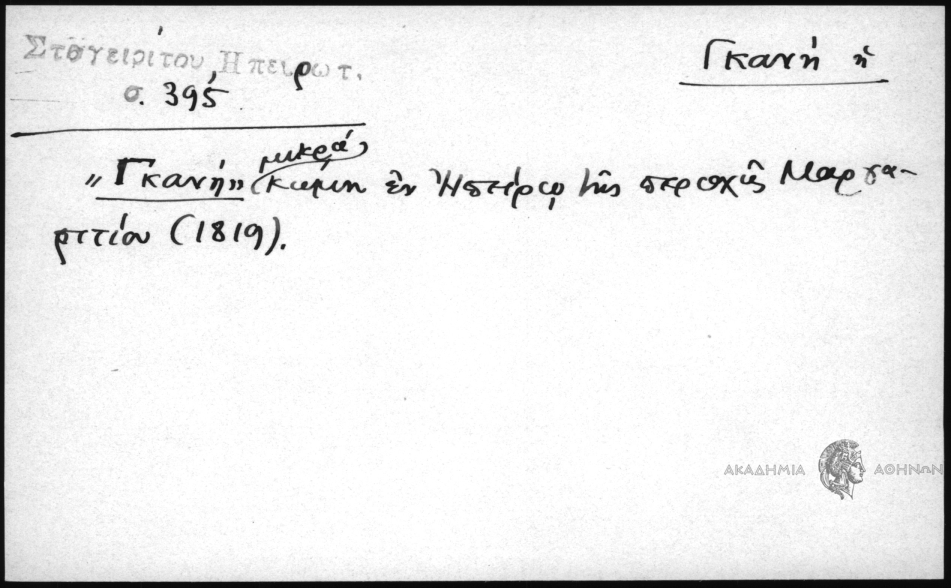 Σταγειρίτου Ηπειρωτ.
σ. 395
Γκανή ή
„Γκανή" μικρά κώμη ἐν Ἠπείρῳ τῆς περιοχῆς Μαργα-
ριτίου (1819).
ΑΚΑΔΗΜΙΑ ΑΘΗΝΩΝ